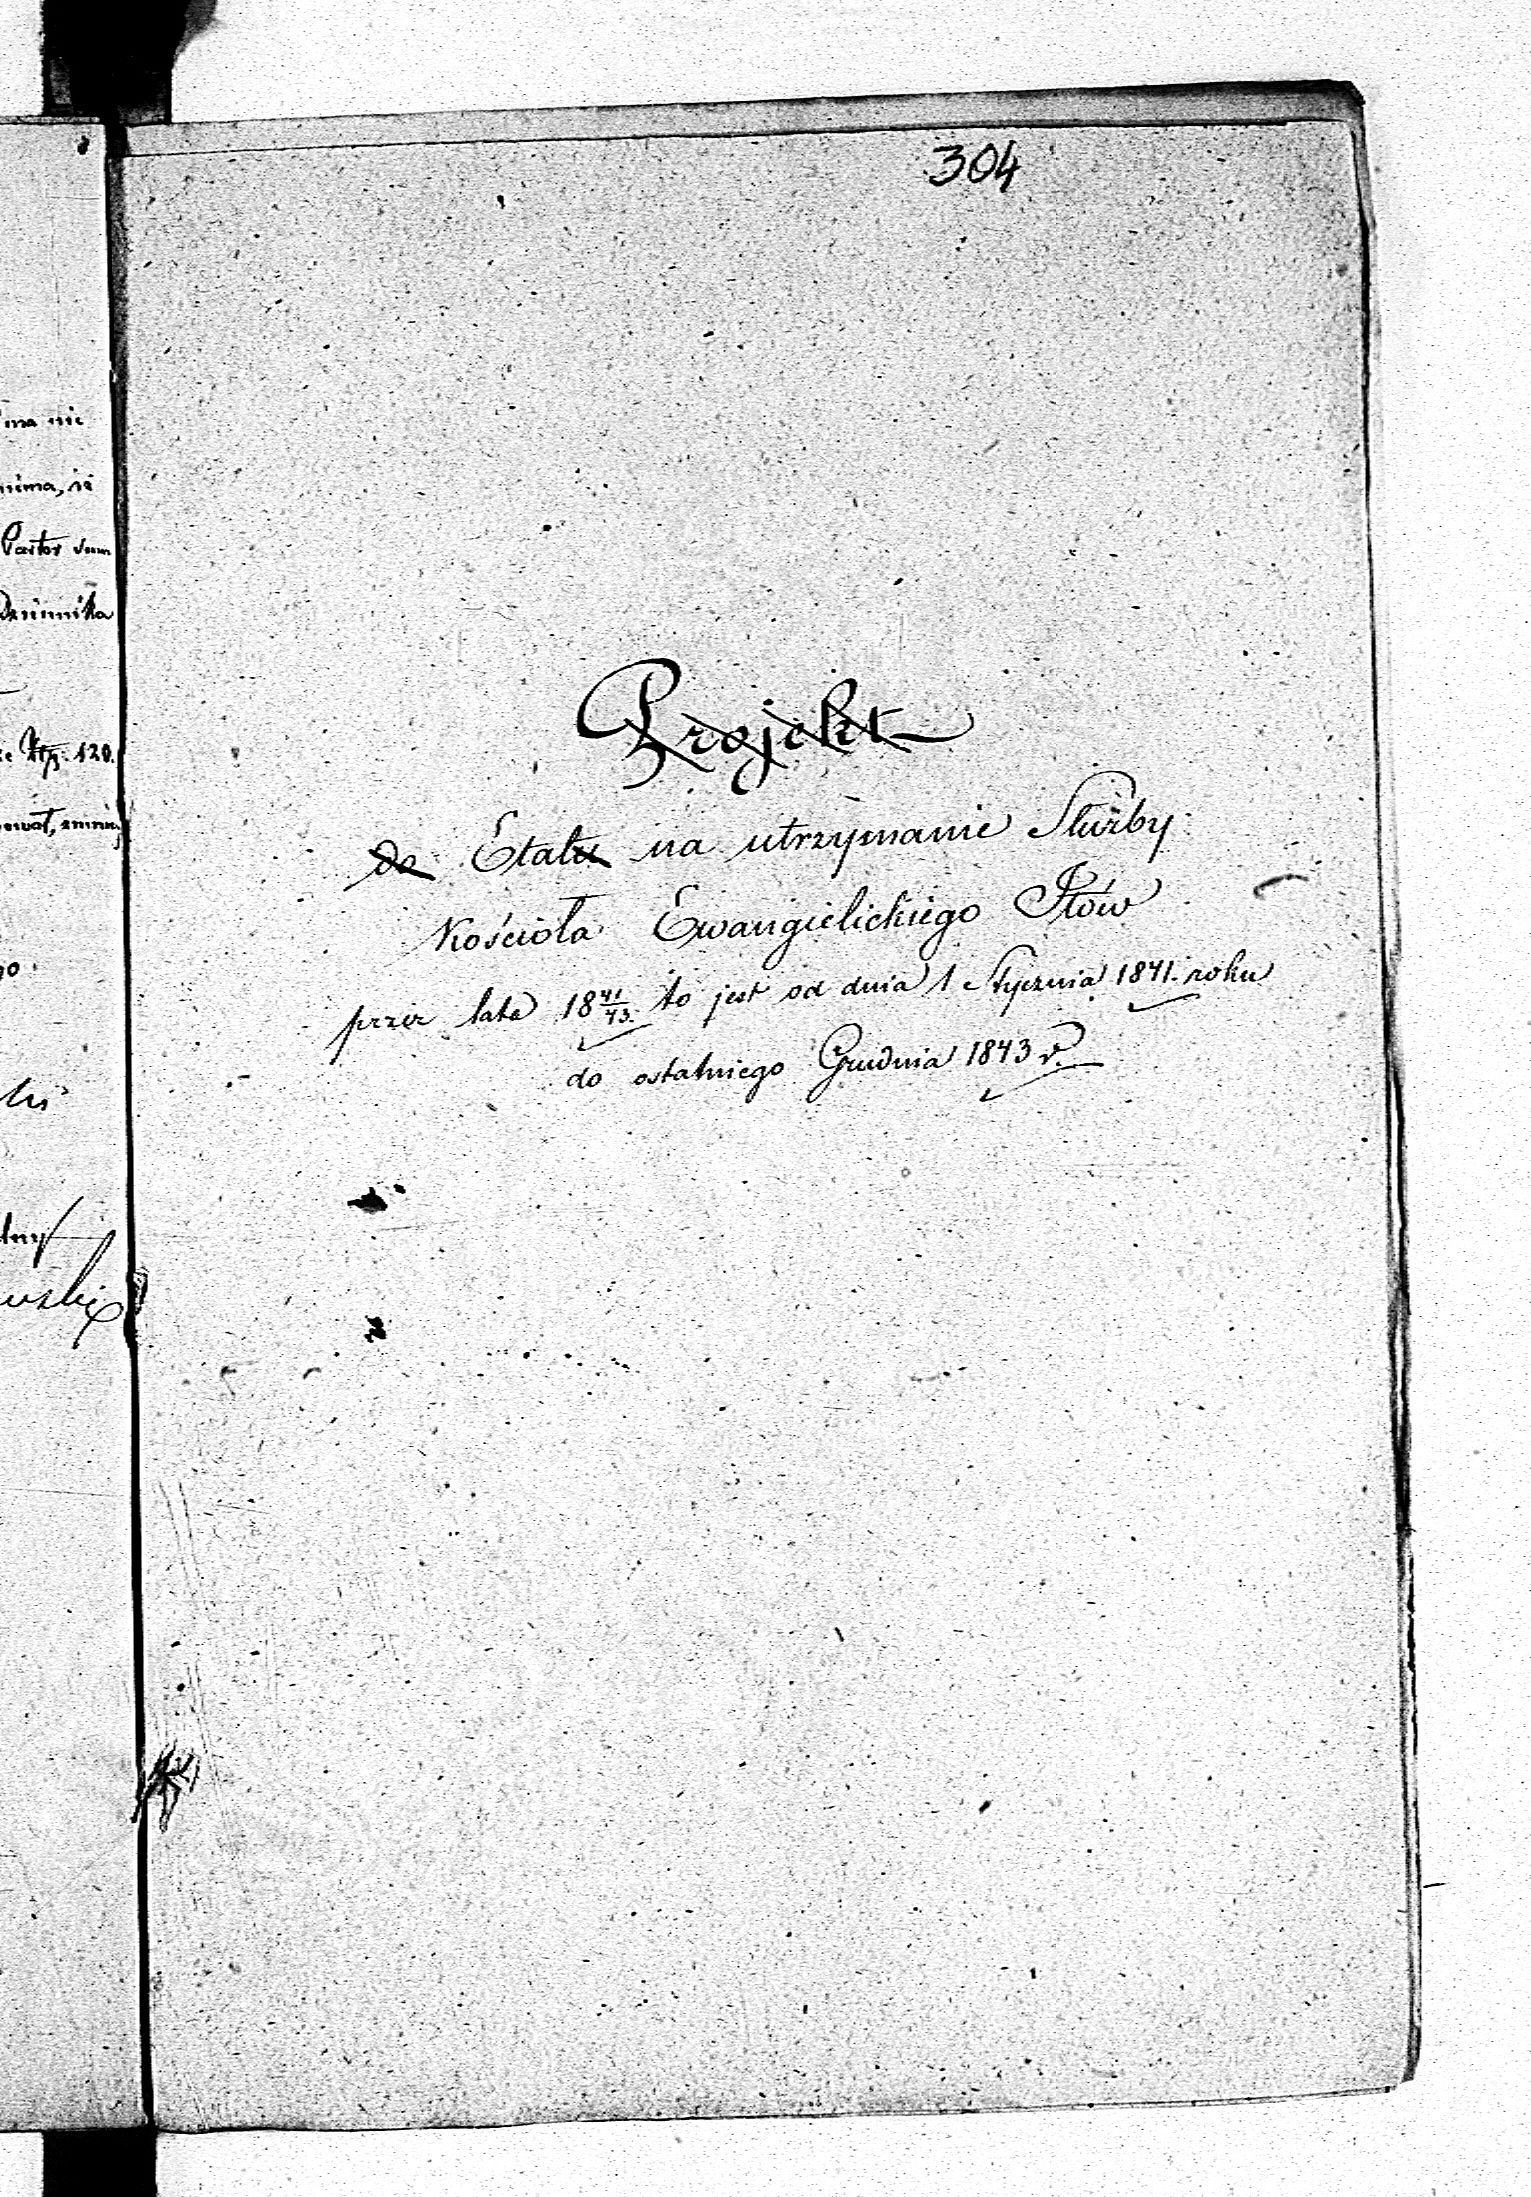 304
Projekt
do Etatu na utrzymanie Służby
Kościoła Ewangielickiego Iłów
przez lata 18 41/43. to jest od dnia 1 Stycznia 1841. roku
do ostatniego Grudnia 1843 r.
ma nie
Pastor
120.